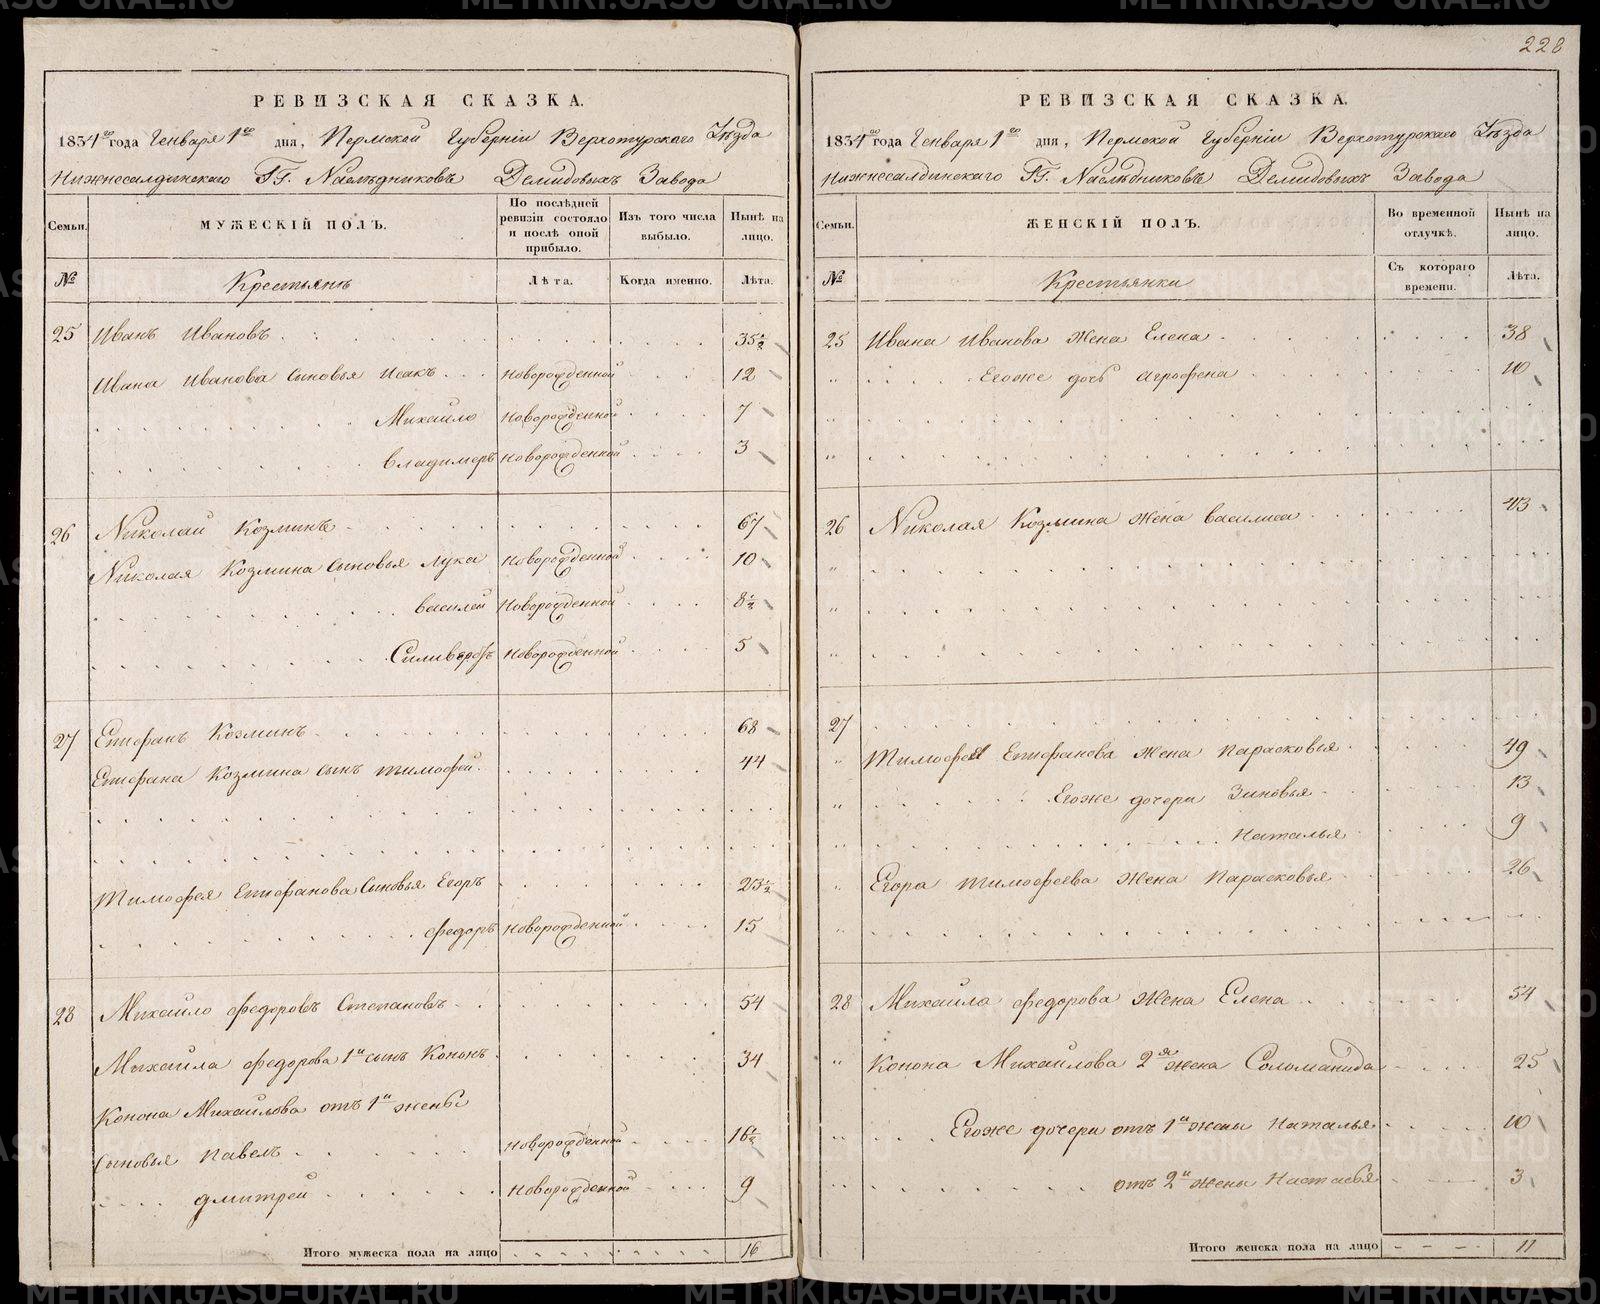 228
РЕВИЗСКАЯ СКАЗКА.
1834го года Генваря 1го дня, Пермской Губерніи Верхотурскаго Уѣзда
Нижнесалдинскаго ГГ. Наслѣдниковъ Демидовыхъ Завода
Семьи. МУЖЕСКІЙ ПОЛЪ. По послѣдней ревизіи состояло и послѣ оной прибыло. Изъ того числа выбыло. Нынѣ на лицо.
№ Крестьянъ Лѣта. Когда именно. Лѣта.
25 Иванъ Ивановъ 35½
Ивана Иванова сыновья Исакъ новорожденной 12
Михайло новорожденной 7
Владимеръ новорожденной 3
26 Николай Козминъ 67
Николая Козмина сыновья Лука новорожденной 10
Василей новорожденной 8½
Силивѣрстъ новорожденной 5
27 Епифанъ Козминъ 68
Епифана Козмина сынъ Тимофей 44
Тимофея Епифанова сыновья Егоръ 23½
Федоръ новорожденной 15
28 Михайло Федоровъ Степановъ 54
Михайла Федорова 1й сынъ Кононъ 34
Конона Михайлова отъ 1й жены
сыновья Павелъ новорожденной 16½
Дмитрей новорожденной 9
Итого мужеска пола на лицо 16
РЕВИЗСКАЯ СКАЗКА.
1834го года Генваря 1го дня, Пермской Губерніи Верхотурскаго Уѣзда
Нижнесалдинскаго ГГ. Наслѣдниковъ Демидовыхъ Завода
Семьи. ЖЕНСКІЙ ПОЛЪ. Во временной отлучкѣ. Нынѣ на лицо.
№ Крестьянки Съ котораго времени. Лѣта.
25 Ивана Иванова жена Елена 38
Егоже дочь Агрофена 10
26 Николая Козмина жена Василиса 43
27
Тимофея Епифанова жена Парасковья 49
Егоже дочери Зиновья 13
Наталья 9
Егора Тимофеева жена Парасковья 26
28 Михайла Федорова жена Елена 54
Конона Михайлова 2я жена Соломанида 25
Егоже дочери отъ 1й жены Наталья 10
отъ 2й жены Настасья 3
Итого женска пола на лицо 11
METRIKI.GASO-URAL.RU